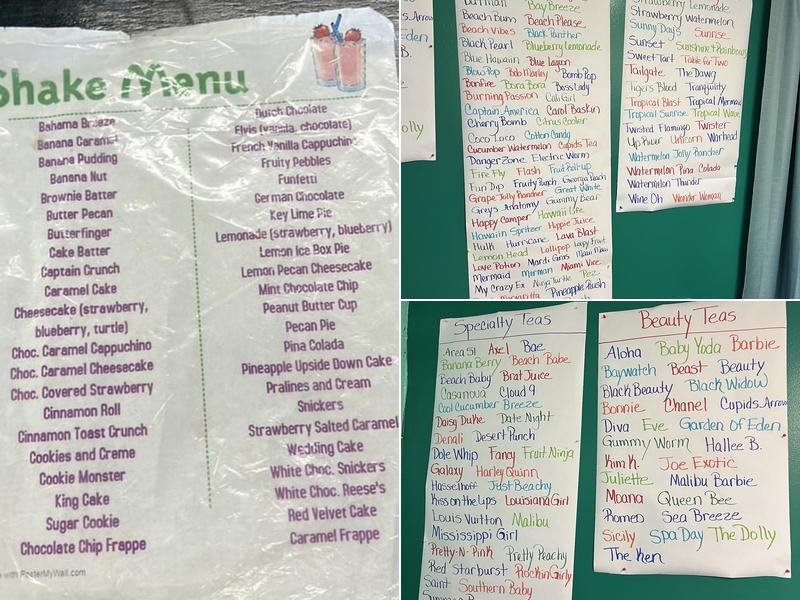 Shake Menu
Bahama Breeze
Banana Caramel
Banana Pudding
Banana Nut
Brownie Batter
Butter Pecan
Butterfinger
Cake Batter
Captain Crunch
Caramel Cake
Cheesecake (strawberry,
blueberry, turtle)
Choc. Caramel Cappuchino
Choc. Caramel Cheesecake
Choc. Covered Strawberry
Cinnamon Roll
Cinnamon Toast Crunch
Cookies and Creme
Cookie Monster
King Cake
Sugar Cookie
Chocolate Chip Frappe
Dutch Choclate
Elvis (vanilla, chocolate)
French Vanilla Cappuchino
Fruity Pebbles
Funfetti
German Chocolate
Key Lime Pie
Lemonade (strawberry, blueberry)
Lemon Ice Box Pie
Lemon Pecan Cheesecake
Mint Chocolate Chip
Peanut Butter Cup
Pecan Pie
Pina Colada
Pineapple Upside Down Cake
Pralines and Cream
Snickers
Strawberry Salted Caramel
Wedding Cake
White Choc. Snickers
White Choc. Reese's
Red Velvet Cake
Caramel Frappe
with PosterMyWall.com
Batman Bay Breeze
Beach Buns Beach Please
Beach Vibes Black Panther
Black Pearl Blueberry Lemonade
Blue Hawaiian Blue Lagoon
Blow Pop Bob Marley Bomb Pop
Bonfire Bora Bora Boss Lady
Burning Passion Cali Girl
Captain America Carol Baskin
Cherry Bomb Citrus Cooler
Coco Loco Cotton Candy
Cucumber Watermelon Cupids Tea
Danger Zone Electric Worm
Fire Fly Flash Fruit Roll-up
Fun Dip Fruity Punch Georgia Peach
Grape Jolly Rancher Great White
Greys Anatomy Gummy Bear
Happy Camper Hawaii Life
Hawaiin Spritzer Hippie Juice
Hulk Hurricane Lava Blast
Lemon Head Lollipop Loopy Fruit
Love Potion Mardi Gras Maui Maui
Mermaid Merman Miami Vice
My Crazy Ex Ninja Turtle Pez
Pineapple Rush
Strawberry Lemonade
Strawberry Watermelon
Sunny Days Sunrise
Sunset Sunshine + Rainbows
Sweet Tart Table for Two
Tailgate The Dawg
Tigers Blood Tranquility
Tropical Blast Tropical Mermaid
Tropical Sunrise Tropical Wave
Twisted Flamingo Twister
Up River Unicorn Warhead
Watermelon Jolly Rancher
Watermelon Pina Colada
Watermelon Thunder
Wine Oh Wonder Woman
Specialty Teas
Area 51 Axel Bae
Banana Berry Beach Babe
Beach Baby Brat Juice
Casanova Cloud 9
Cool Cucumber Breeze
Daisy Duke Date Night
Denali Desert Punch
Dole Whip Fancy Fruit Ninja
Galaxy Harley Quinn
Hasselhoff Just Beachy
Kiss on the Lips Louisiana Girl
Louis Vuitton Malibu
Mississippi Girl
Pretty-N-Pink Pretty Peachy
Red Starburst Rockin Girly
Saint Southern Baby
Beauty Teas
Aloha Baby Yoda Barbie
Baywatch Beast Beauty
Black Beauty Black Widow
Bonnie Chanel Cupids Arrow
Diva Eve Garden of Eden
Gummy Worm Hallee B.
Kim K. Joe Exotic
Juliette Malibu Barbie
Moana Queen Bee
Romeo Sea Breeze
Sicily Spa Day The Dolly
The Ken